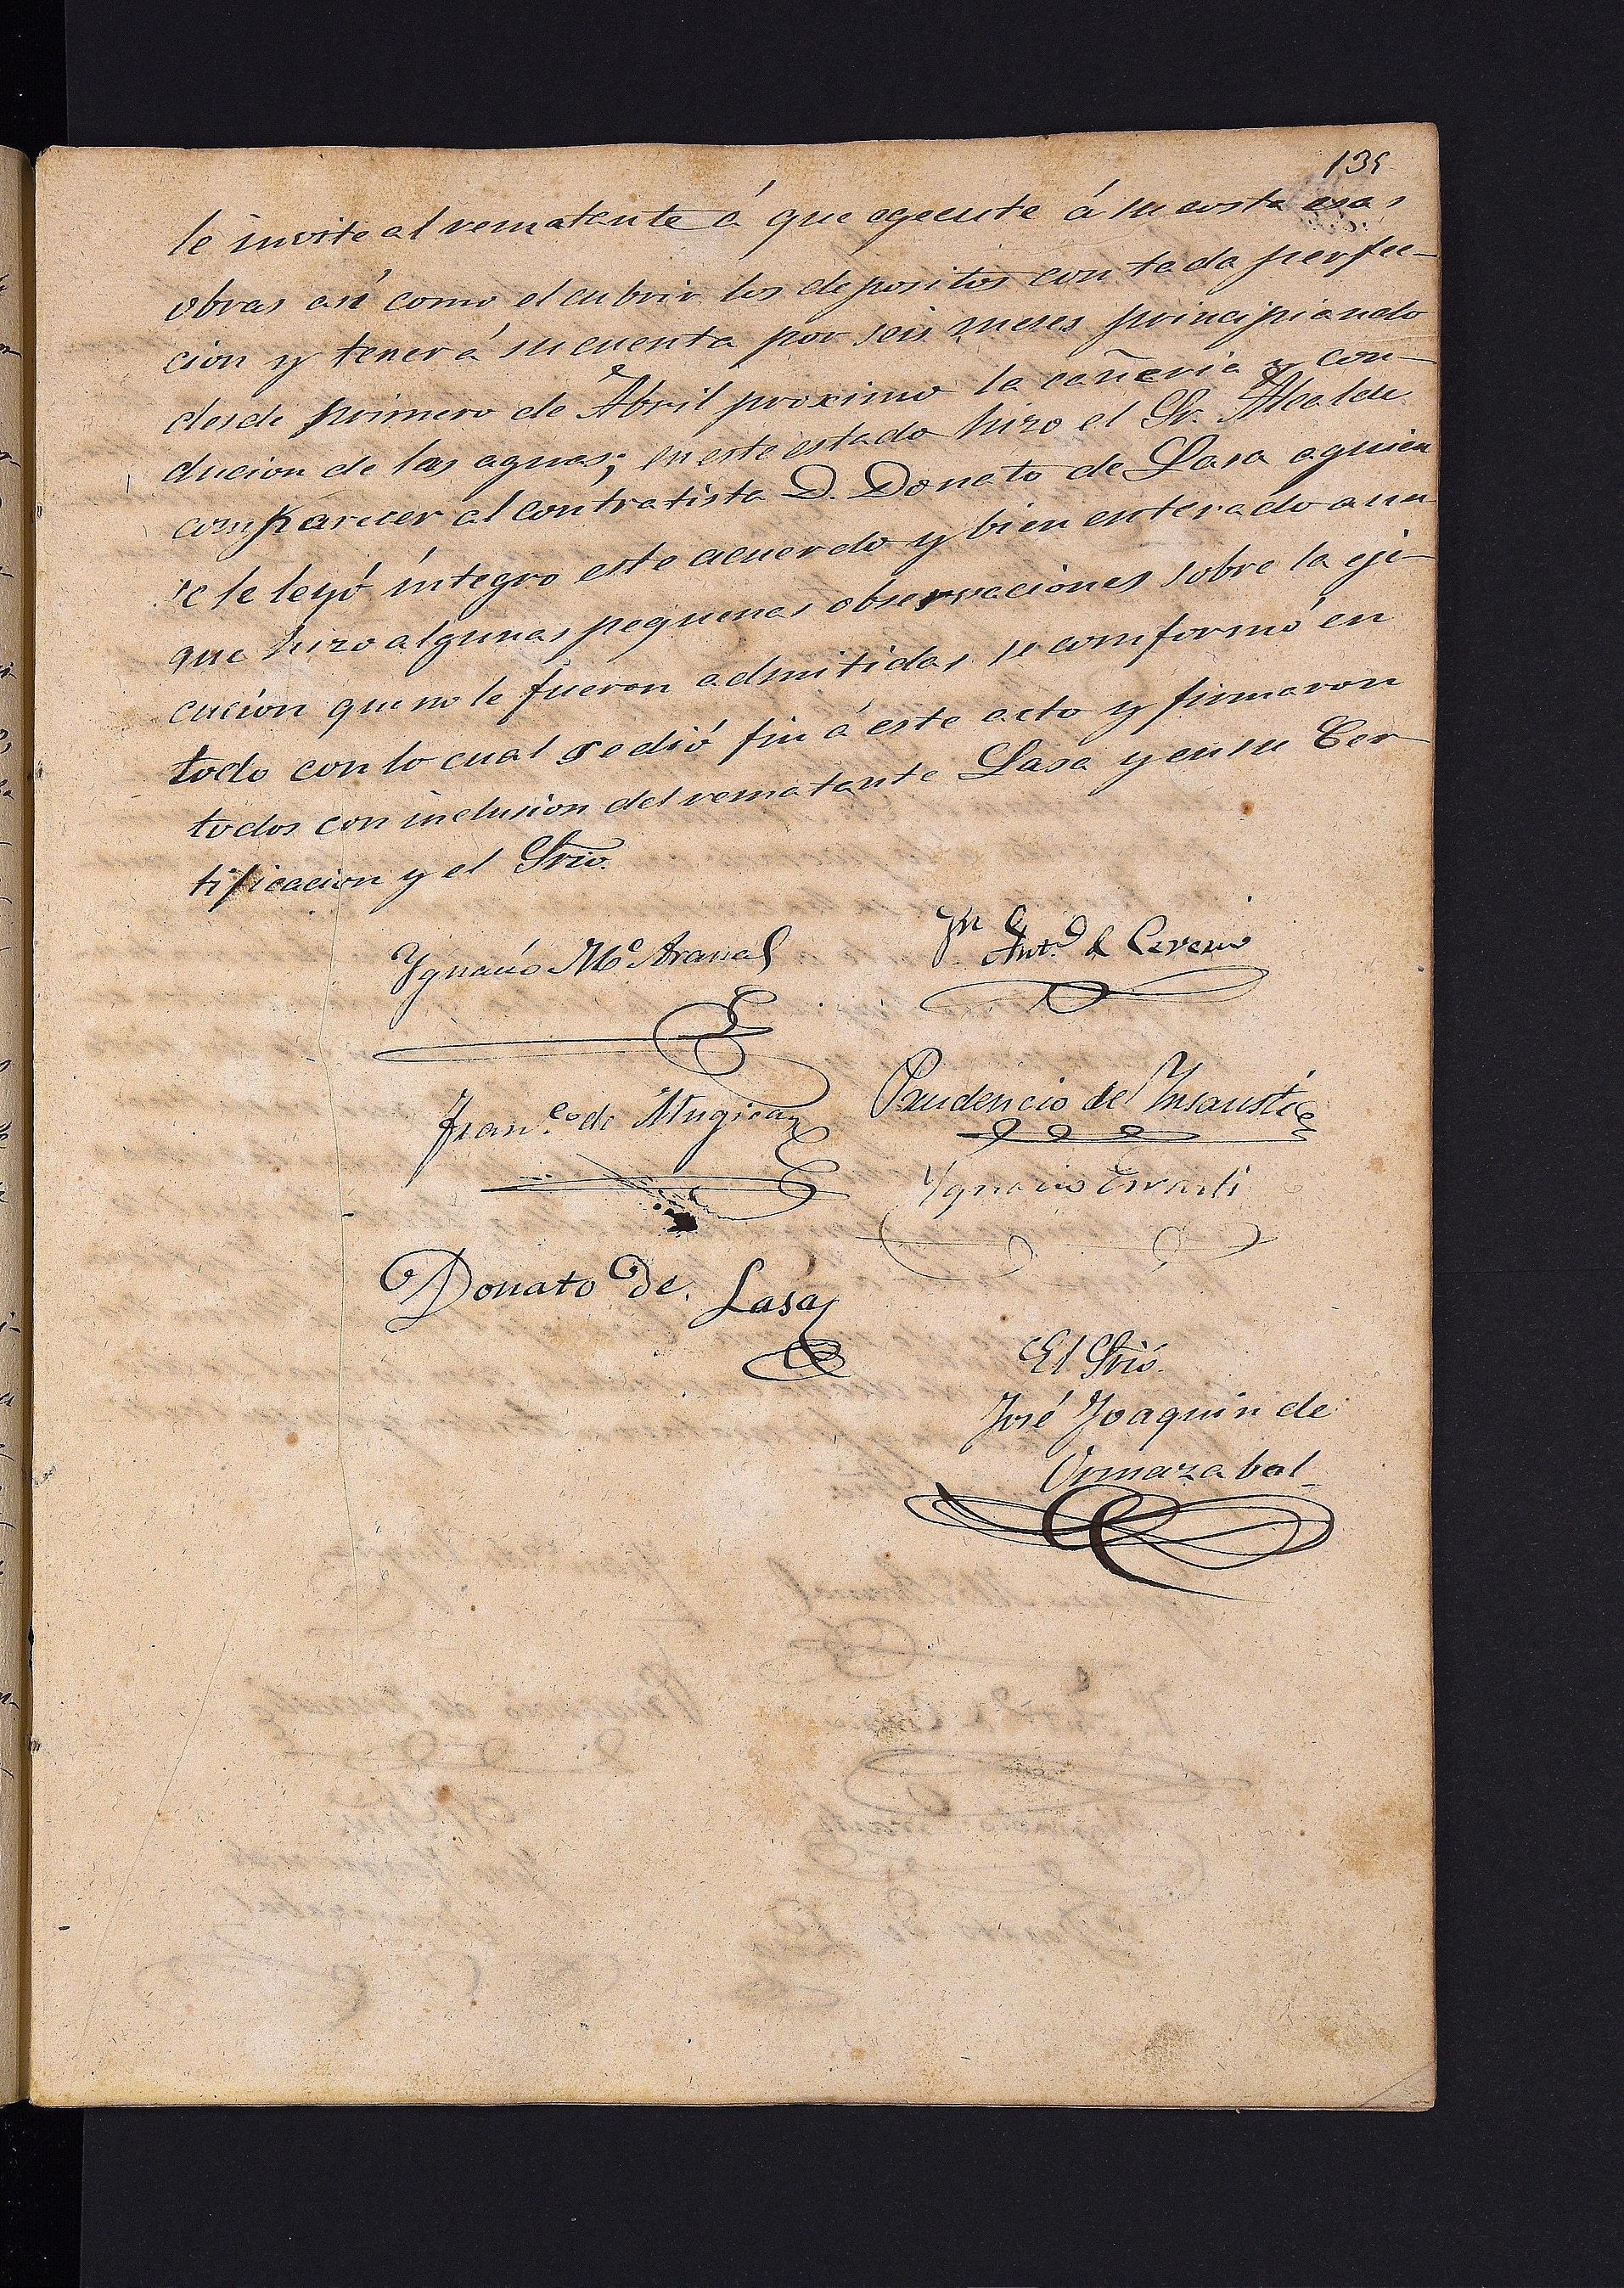 135
le invite al rematante á que egecute á su costa esas
obras así como el cubrir los depositos con toda perfec-
cion y tener á su cuenta por seis meses principiando
desde primero de Abril proximo la cañeria y con-
ducion de las aguas; en este estado hizo el Sr. Alcalde
comparecer al contratista D. Donato de Lasa a quien
se le leyó íntegro este acuerdo y bien enterado aun
que hizo algunas pequenas observaciones sobre la eje-
cucion que no le fueron admitidas se comformó en
todo con lo cual se dió fin á este acto y firmaron
todos con inclusion del rematante Lasa y en su Cer
tificacion y el Srio.
Ygnacio Mª Aranal
Jn Antº de Cerain
Franco de Mugica
Prudencio de Ynsausti
Ygnacio Errasti
Donato de Lasa
El Srio.
José Joaquin de
Ormazabal